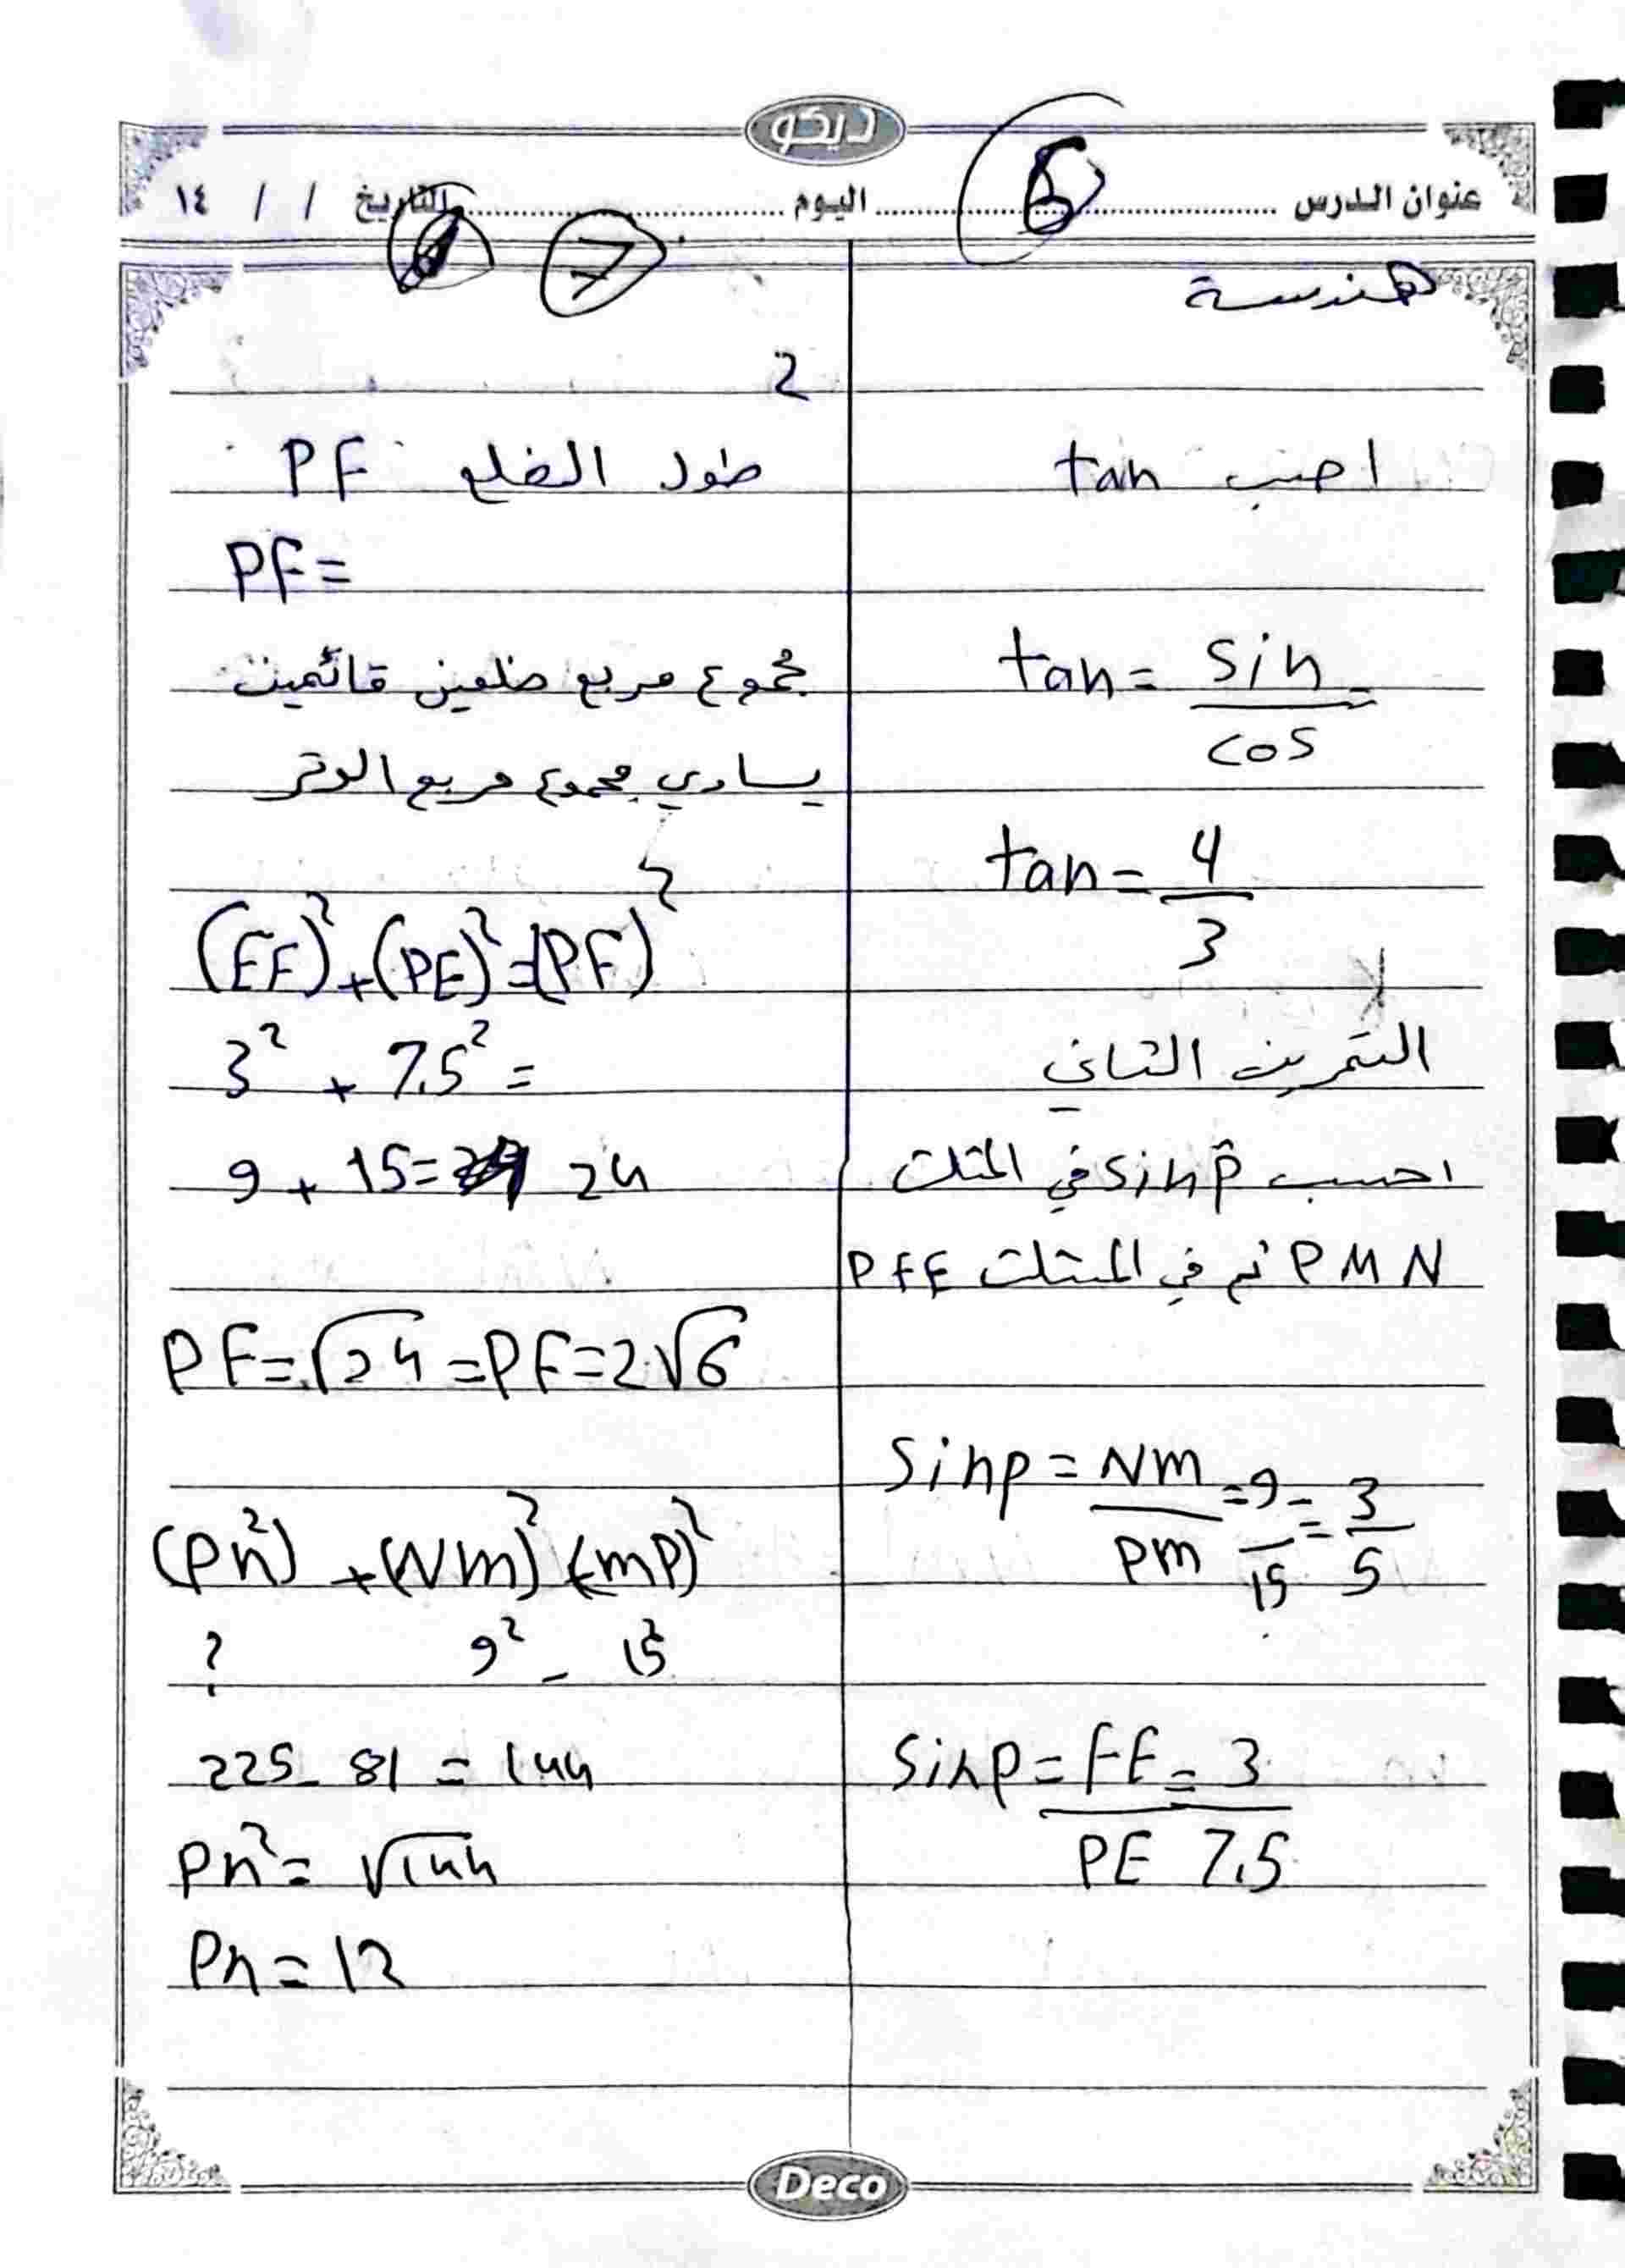 ديكو
عنوان الدرس 6 اليوم التاريخ / / ١٤
7
هندسة
احسب tan
tan = sin =
cos
tan = 4
3
التمرين الثاني
احسب sin p̂ في المثلث
PMN ثم في المثلث PFE
sin p = NM = 9 = 3
PM 15 5
sin p = FE = 3
PE 7.5
2
طول الضلع PF
PF =
مجموع مربع ضلعين قائمين
يساوي مجموع مربع الوتر
(EF)² + (PE)² = (PF)²
3² + 7.5² =
9 + 15 = 24
PF = √24 = PF = 2√6
(Pn²) + (Nm)² = (mP)²
? 9² - 15²
225 - 81 = 144
Pn² = √144
Pn = 12
Deco